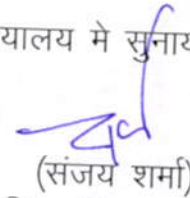 यालय मे सुनाय
(संजय शर्मा)